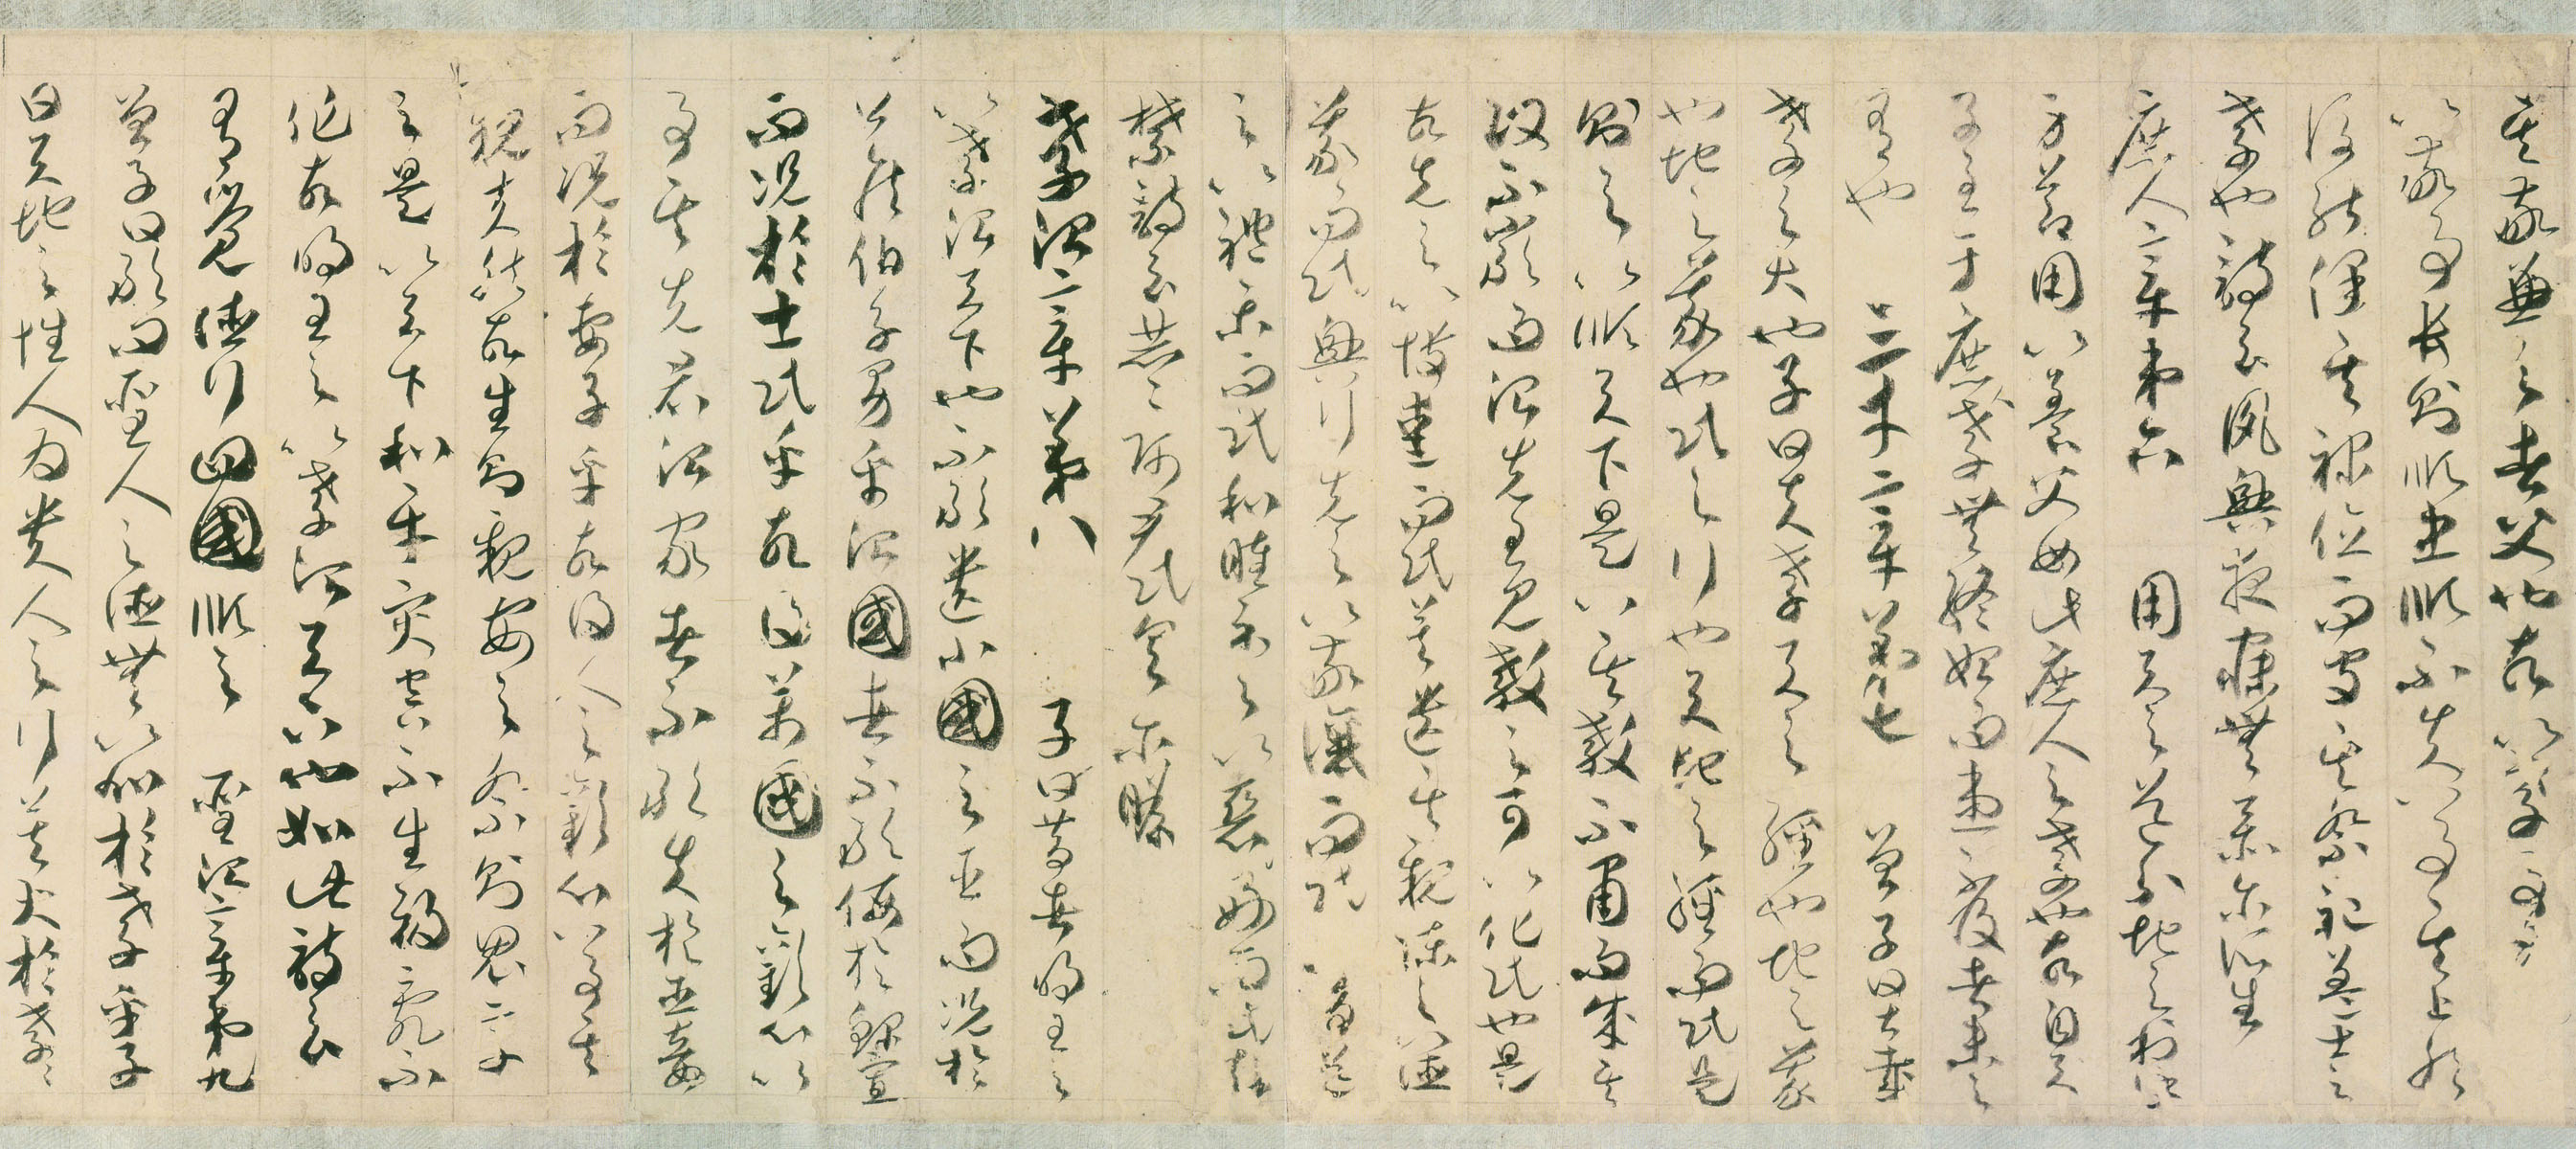 其敬兼之者父也故以孝事君
以敬事長則順忠順不失以事其上然
後能保其祿位而守其祭祀蓋士之
孝也詩云夙興夜寐無忝尔所生
庶人章第六　用天之道分地之利謹
身節用以養父母此庶人之孝也故自天
子至于庶人孝無終始而患不及者未之
有也　三才章第七　曾子曰甚哉
孝之大也子曰夫孝天之經也地之義
也地之義也民之行也天地之經而民是
則之以順天下是以其教不肅而成其
政不嚴而治先王見教之可以化民也是
故先之以博愛而民莫遺其親陳之以德
義而民興行先之以敬讓而民不爭導
之以禮樂而民和睦示之以惡好而民知
禁詩云赫赫師尹民具尔瞻
孝治章第八　子曰昔者明王之
以孝治天下也不敢遺小國之臣而況於
公侯伯子男乎治國者不敢侮於鰥寡
而況於士民乎故得萬國之歡心以
事其先君治家者不敢失於臣妾
而況於妻子乎故得人之歡心以事其
親夫然故生則親安之祭則鬼享
之是以天下和平災害不生禍亂不
作故明王之以孝治天下也如此詩云
有覺德行四國順之　聖治章第九
曾子曰敢問聖人之德無以加於孝乎子
曰天地之性人為貴人之行莫大於孝孝